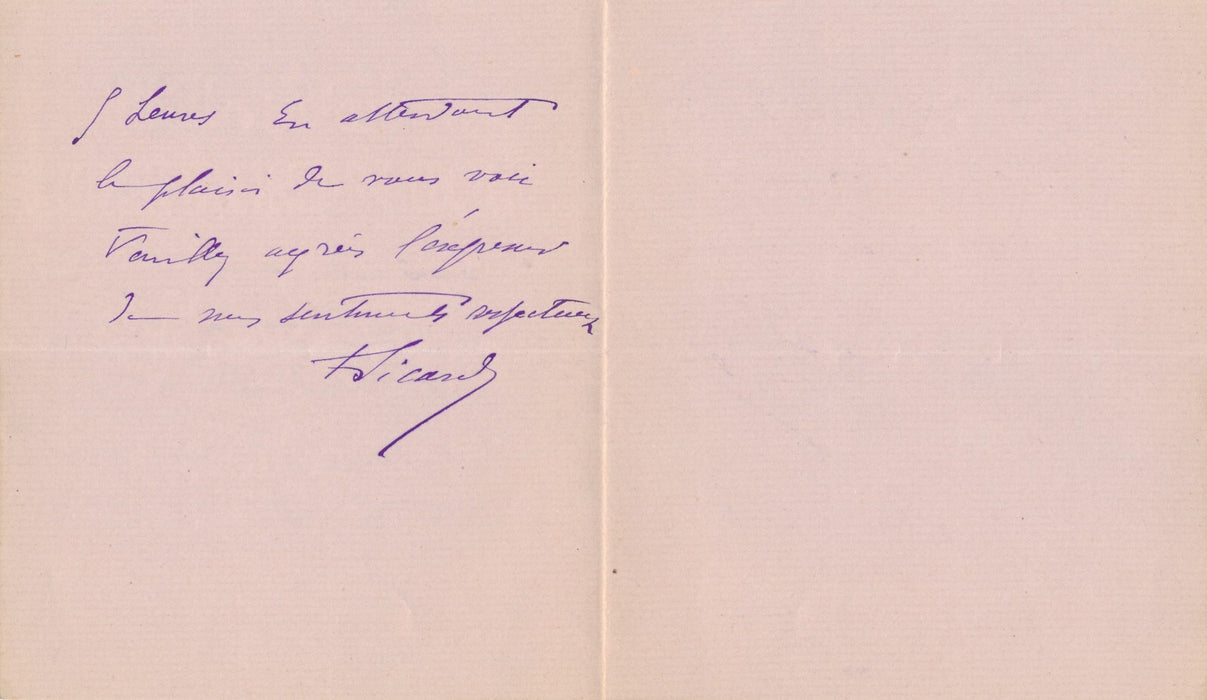 5 heures En attendant
le plaisir de vous voir
Veuillez agréer l'expression
de mes sentiments respectueux
Sicard